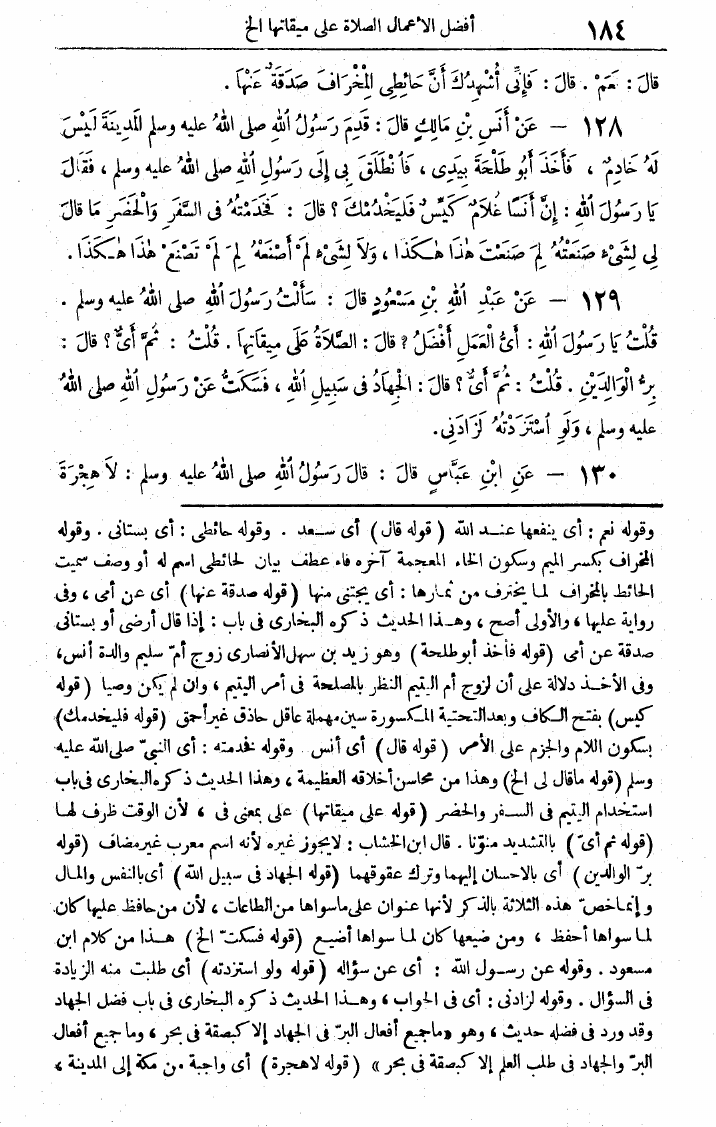 ١٨٤ أفضل الأعمال الصلاة على ميقاتها الخ
قالَ : نَعَمْ . قالَ : فَإِنِّى أُشْهِدُكَ أَنَّ حَائِطِى الْمِخْرَافَ صَدَقَةٌ عَنْهَا .
١٢٨ – عَنْ أَنَسِ بْنِ مَالِكٍ قالَ : قَدِمَ رَسُولُ اللهِ صلى اللهُ عليه وسلم المَدِينَةَ لَيْسَ
لَهُ خَادِمٌ ، فَأَخَذَ أَبُو طَلْحَةَ بِيَدِى ، فَانْطَلَقَ بِى إِلَى رَسُولِ اللهِ صلى اللهُ عليه وسلم ، فَقَالَ
يَا رَسُولَ اللهِ : إِنَّ أَنَسًا غُلَامٌ كَيِّسٌ فَلْيَخْدُمْكَ ؟ قالَ : فَخَدَمْتُهُ فى السَّفَرِ وَالْحَضَرِ مَا قالَ
لِى لِشَىْءٍ صَنَعْتُهُ لِمَ صَنَعْتَ هٰذَا هٰكَذَا ، وَلَا لِشَىْءٍ لَمْ أَصْنَعْهُ لِمَ لَمْ تَصْنَعْ هٰذَا هٰكَذَا .
١٢٩ – عَنْ عَبْدِ اللهِ بْنِ مَسْعُودٍ قالَ : سَأَلْتُ رَسُولَ اللهِ صلى اللهُ عليه وسلم .
قُلْتُ يَا رَسُولَ اللهِ : أَىُّ الْعَمَلِ أَفْضَلُ ؟ قالَ : الصَّلَاةُ عَلَى مِيقَاتِهَا . قُلْتُ : ثُمَّ أَىٌّ ؟ قالَ :
بِرُّ الْوَالِدَيْنِ . قُلْتُ : ثُمَّ أَىٌّ ؟ قالَ : الْجِهَادُ فى سَبِيلِ اللهِ ، فَسَكَتُّ عَنْ رَسُولِ اللهِ صلى اللهُ
عليه وسلم ، وَلَوِ اسْتَزَدْتُهُ لَزَادَنِى .
١٣٠ – عَنِ ابْنِ عَبَّاسٍ قالَ : قالَ رَسُولُ اللهِ صلى اللهُ عليه وسلم : لَا هِجْرَةَ
وقوله نعم : أى ينفعها عنـد الله (قوله قال) أى سـعد . وقوله حائطى : أى بستانى . وقوله
المخراف بكسر الميم وسكون الخاء المعجمة آخره فاء عطف بيان لحائطى اسم له أو وصف سميت
الحائط بالمخراف لما يخترف من ثمارها : أى يجتنى منها (قوله صدقة عنها) أى عن أمى ، وفى
رواية عليها ، والأولى أصح ، وهـذا الحديث ذكره البخارى فى باب : إذا قال أرضى أو بستانى
صدقة عن أمى (قوله فأخذ أبوطلحة) وهو زيد بن سهل الأنصارى زوج أمّ سليم والدة أنس،
وفى الأخـذ دلالة على أن لزوج أم اليتيم النظر بالمصلحة فى أمر اليتيم ، وان لم يكن وصيا (قوله
كيس) بفتح الكاف وبعد التحتية المكسورة سين مهملة عاقل حاذق غير أحمق (قوله فليخدمك)
بسكون اللام والجزم على الأمر (قوله قال) أى أنس وقوله فخدمته : أى النبىّ صلى الله عليه
وسلم (قوله ماقال لى الخ) وهذا من محاسن أخلاقه العظيمة ، وهذا الحديث ذكره البخارى فى باب
استخدام اليتيم فى السـفر والحضر (قوله على ميقاتها) على بمعنى فى ، لأن الوقت ظرف لهـا
(قوله ثم أىّ) بالتشديد منوّنا . قال ابن الخشاب : لايجوز غيره لأنه اسم معرب غير مضاف (قوله
برّ الوالدين) أى بالاحسان إليهما وترك عقوقهما (قوله الجهاد فى سبيل الله) أى بالنفس والمـال
وإنمـا خصّ هذه الثلاثة بالذكر لأنها عنوان على ماسواها من الطاعات ، لأن من حافظ عليها كان
لمـا سواها أحفظ ، ومن ضيعها كان لمـا سواها أضيع (قوله فسكت الخ) هـذا من كلام ابن
مسعود . وقوله عن رسـول الله : أى عن سؤاله (قوله ولو استزدته) أى طلبت منه الزيادة
فى السؤال . وقوله لزادنى : أى فى الجواب ، وهـذا الحديث ذكره البخارى فى باب فضل الجهاد
وقد ورد فى فضله حديث ، وهو «ماجميع أفعال البرّ فى الجهاد إلا كبصقة فى بحر ، وما جميع أفعال
البرّ والجهاد فى طلب العلم إلا كبصقة فى بحر» (قوله لاهجرة) أى واجبة من مكة إلى المدينة ،